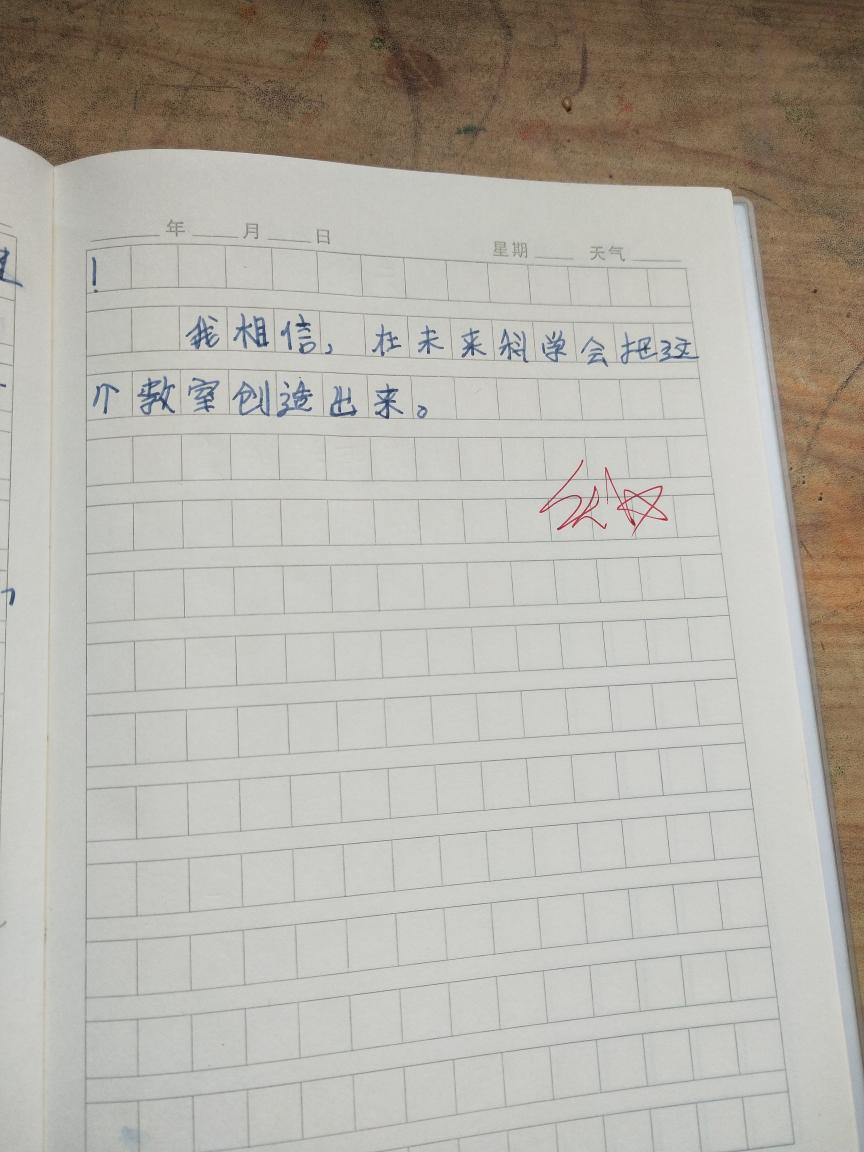 年 月 日 星期 天气
!
我相信，在未来科学会把这
个教室创造出来。